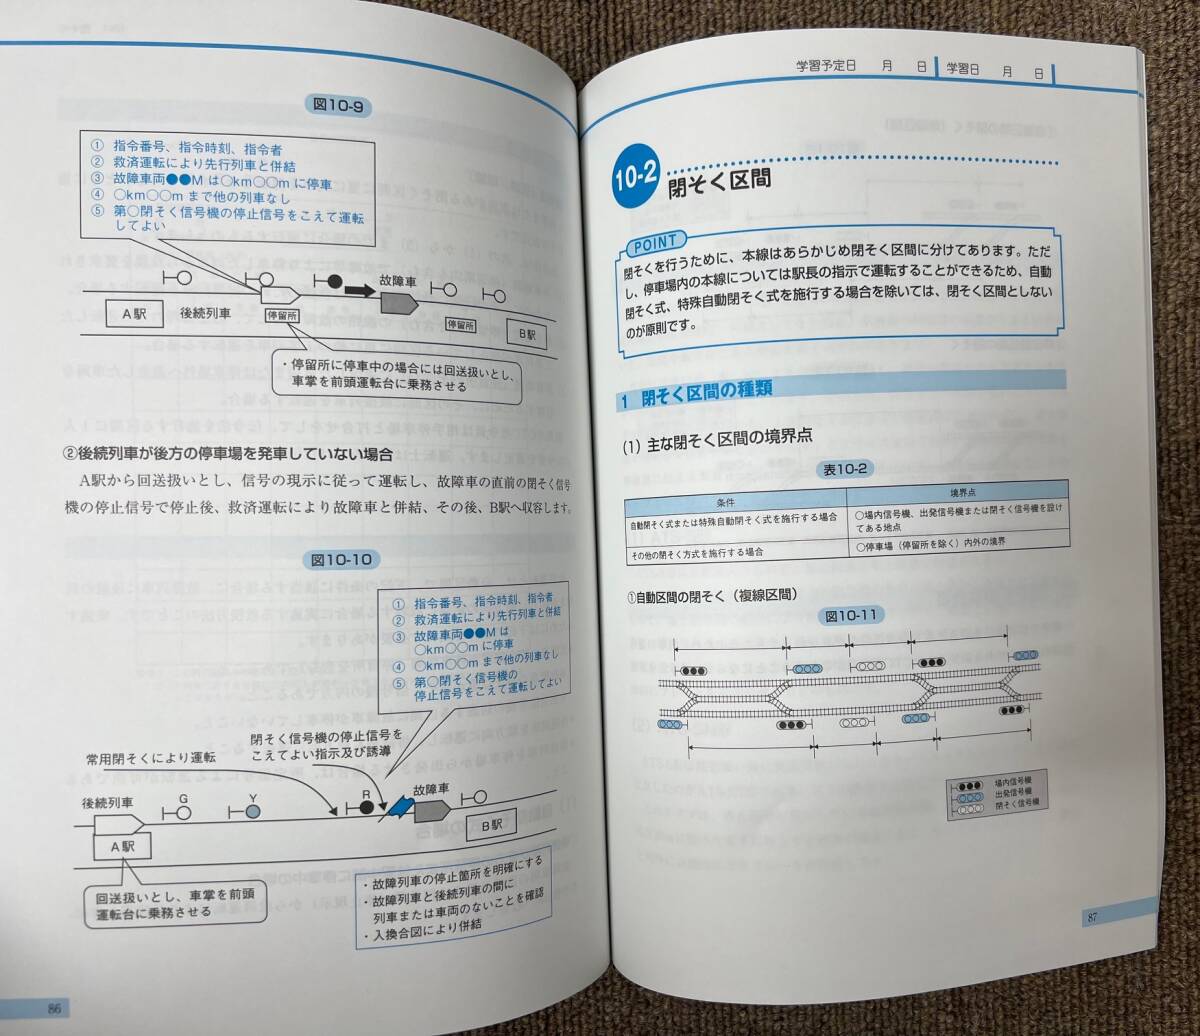 図10-9
① 指令番号、指令時刻、指令者
② 救済運転により先行列車と併結
③ 故障車両●●Mは○km○○mに停車
④ ○km○○mまで他の列車なし
⑤ 第○閉そく信号機の停止信号をこえて運転
してよい
故障車
A駅
後続列車
停留所
停留所
B駅
・停留所に停車中の場合には回送扱いとし、
車掌を前頭運転台に乗務させる
②後続列車が後方の停車場を発車していない場合
A駅から回送扱いとし、信号の現示に従って運転し、故障車の直前の閉そく信号
機の停止信号で停止後、救済運転により故障車と併結、その後、B駅へ収容します。
図10-10
① 指令番号、指令時刻、指令者
② 救済運転により先行列車と併結
③ 故障車両●●Mは
○km○○mに停車
④ ○km○○mまで他の列車なし
⑤ 第○閉そく信号機の
停止信号をこえて運転してよい
閉そく信号機の停止信号を
こえてよい指示及び誘導
常用閉そくにより運転
後続列車
G
Y
R
故障車
A駅
B駅
回送扱いとし、車掌を前頭
運転台に乗務させる
・故障列車の停止箇所を明確にする
・故障列車と後続列車の間に
列車または車両のないことを確認
・入換合図により併結
86
学習予定日 月 日 学習日 月 日
10-2
閉そく区間
POINT
閉そくを行うために、本線はあらかじめ閉そく区間に分けてあります。ただ
し、停車場内の本線については駅長の指示で運転することができるため、自動
閉そく式、特殊自動閉そく式を施行する場合を除いては、閉そく区間としない
のが原則です。
1 閉そく区間の種類
(1) 主な閉そく区間の境界点
表10-2
条件
境界点
自動閉そく式または特殊自動閉そく式を施行する場合
○場内信号機、出発信号機または閉そく信号機を設け
てある地点
その他の閉そく方式を施行する場合
○停車場（停留所を除く）内外の境界
①自動区間の閉そく（複線区間）
図10-11
場内信号機
出発信号機
閉そく信号機
87